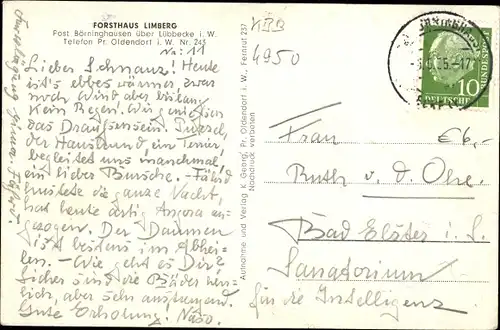 FORSTHAUS LIMBERG
Post Börninghausen über Lübbecke i. W.
Telefon Pr. Oldendorf i. W. Nr. 243
No: 11
Lieber Schnauz! Heute
ist's ebbes wärmer, zwar
noch Wind aber bislang
kein Regen! Wir genießen
das Draußensein.
der Haushund ein Terrier,
begleitet uns manchmal,
ein lieber Bursche. -
die ganze Nacht,
hat heute artig Angora an-
gezogen. Der Daumen
ist bestens im Abhei-
len. - Wie geht es Dir?
Sicher sind die Bäder
lich, aber sehr anstrengend.
Gute Erholung! Näso.
Aufnahme und Verlag K. Georg, Pr. Oldendorf i. W., Fernruf 237
Nachdruck verboten
4950
10
DEUTSCHE BUNDESPOST
€6,-
Frau
Ruth v. d. Ohe,
Bad Elster i. S.
Sanatorium
für die Intelligenz